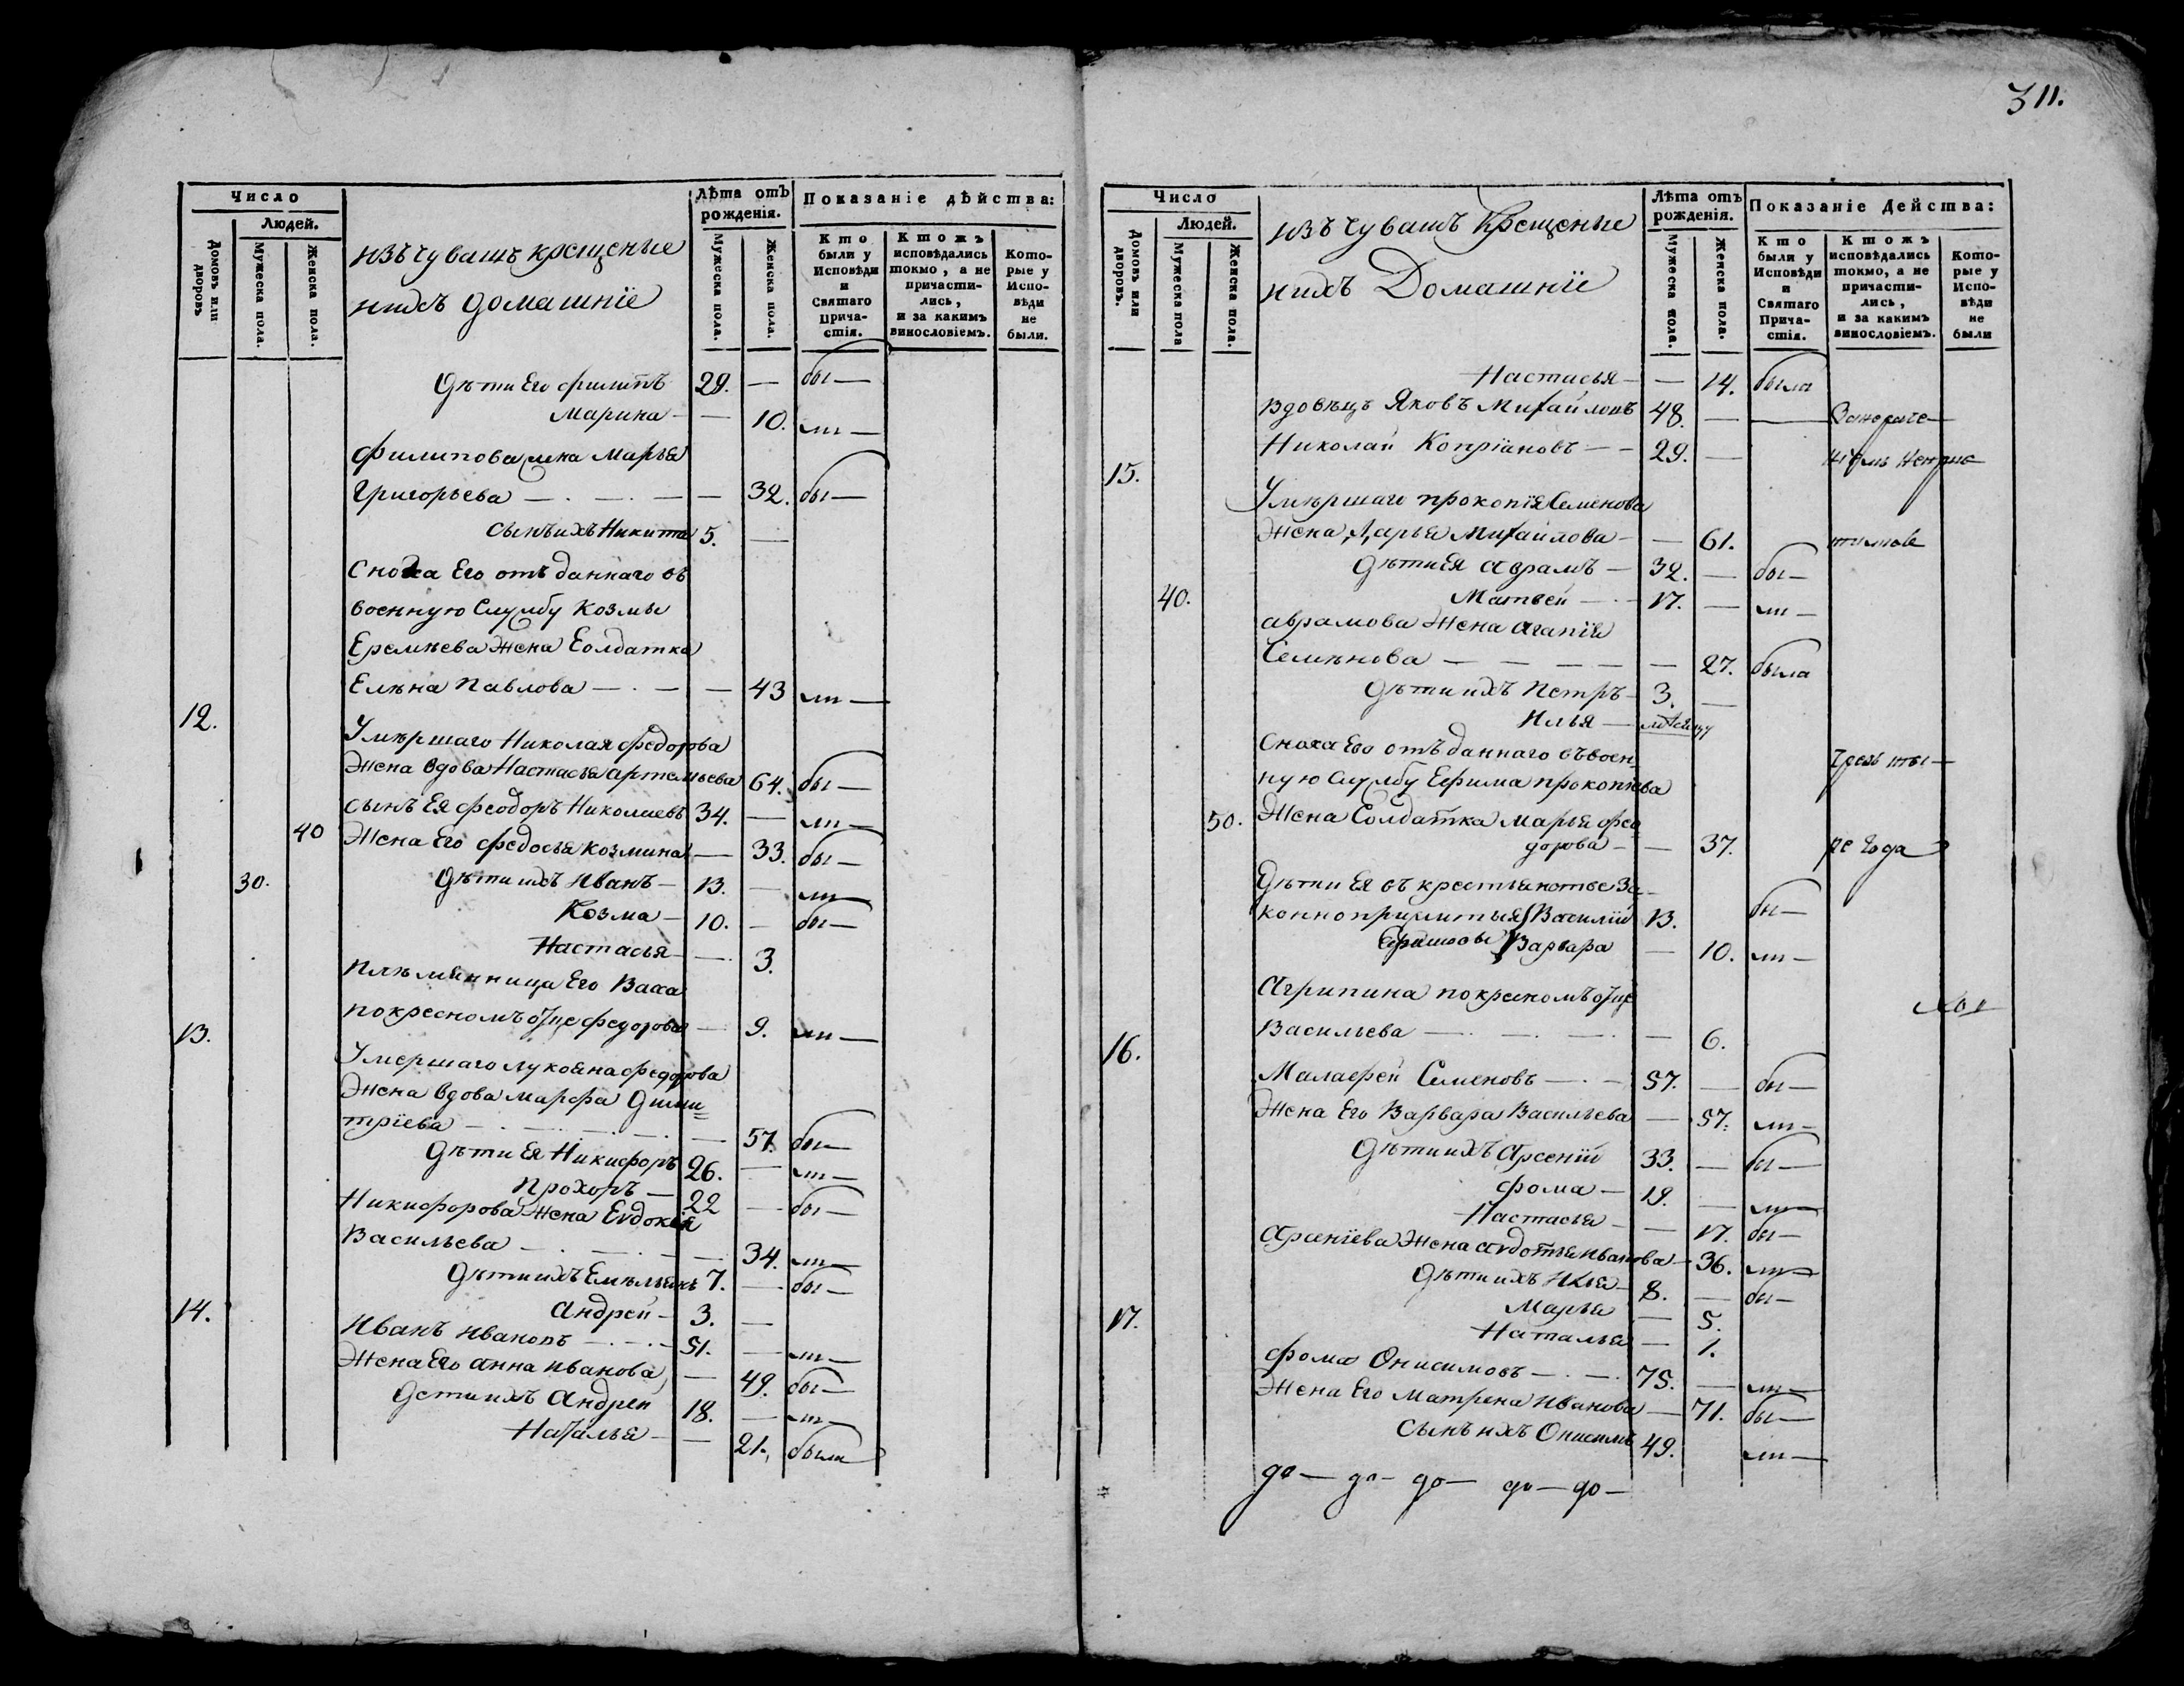 311.
Число
Людей.
Домовъ или дворовъ
Мужеска пола.
Женска пола.
изъ чувашъ крещеные
ихъ домашніе
Лѣта отъ рожденія.
Мужеска пола.
Женска пола.
Показаніе дѣйства:
Кто были у Исповѣди и Святаго Причастія.
Ктожъ исповѣдались токмо, а не причастились, и за какимъ винословіемъ.
Которые у Исповѣди не были.
дѣти Его филипъ 29. — бы —
Марина — — 10. ли —
филипова жена Марья
Григорьева — — — 32. бы —
сынъ ихъ Никита 5. —
Сноха Его отъ даннаго въ
военную Службу Козмы
Еремѣева Жена Солдатка
Елѣна Павлова — — — 43 ли —
12.
Умѣршаго Николая федорова
Жена вдова Настасья артемьева 64. бы —
сынъ Ея феодоръ Николаевъ 34. — ли —
40 Жена Его федосья козмина — 33. бы —
30. дѣти ихъ Иванъ — 13. — ли —
Козма — 10. — бы —
Настасья — — 3.
плѣмянница Его Васса
13. по кресномъ отце федорова — 9. ли —
Умершаго лукояна федорова
Жена вдова марфа дими=
тріева — — — 57. бы —
дѣти Ея Никифоръ 26. — ли —
Прохоръ — 22 — бы —
Никифорова Жена Евдокія
Васильева — — — 34. ли —
дѣти ихъ Емѣльянъ 7. — бы —
14. андрей — 3. —
Иванъ Ивановъ — — 51. — ли —
Жена Его анна иванова, — 49. бы —
дети ихъ андрей 18. — ли —
Наталья — — 21. была
Число
Людей.
Домовъ или дворовъ.
Мужеска пола
Женска пола.
изъ чувашъ крещеные
ихъ Домашніе
Лѣта отъ рожденія.
Мужеска пола.
Женска пола.
Показаніе Действа:
Кто были у Исповѣди и Святаго Причастія.
Ктожъ исповѣдались токмо, а не причастились, и за какимъ винословіемъ.
Которые у Исповѣди не были
Настасья — — 14. была
вдовѣцъ Яковъ Михайловъ 48. — —
Николай Копріановъ — — 29. —
15.
Умѣршаго прокопія Семенова
Жена Дарья Михайлова — — 61.
дѣти Ея аврамъ — 32. — бы —
40. Матвей — 17. — ли —
аврамова Жена агапія
Семѣнова — — — — 27. была
дѣти ихъ Петръ — 3. —
Илья —
Сноха Его отъ даннаго въ воен-
ную службу Ефима прокопіева
50. Жена Солдатка Марья фео
дорова — — 37. ре года
дѣти Ея въ крестьянотве за-
конно прижитыя Василій 13. бы —
Ефимовы Варвара — 10. ли —
агрипина по кресномъ отце
Васильева — — — 6.
16.
Малафей Семеновъ — — 57. — бы —
Жена Его Варвара Васильева — 57. ли —
дѣти ихъ арсеній 33. — бы —
фома — 19. — ли —
Настасья — — 17. бы —
арсеніева Жена авдотья иванова — 36. ли —
дѣти ихъ Илья — 8. — бы —
17. Марья — 5.
Наталья — 1.
фома Онисимовъ — — 75. — ли —
Жена Его Матрена Иванова — 71. бы —
Сынъ ихъ Онисимъ 49. ли —
до — до — до — до — до —